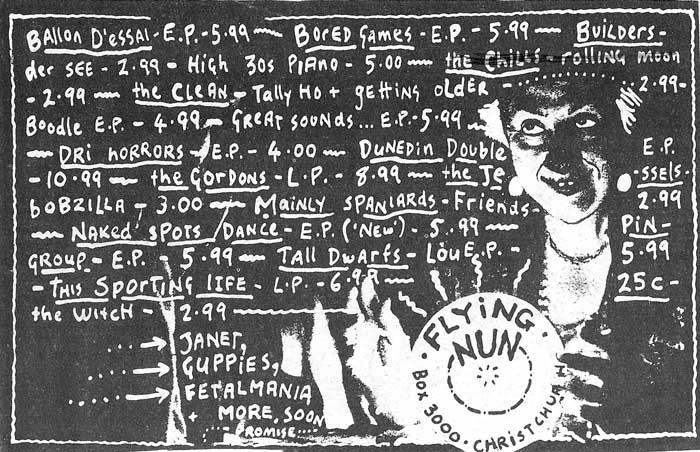 BALLON D'ESSAI - E.P. - 5.99 — BORED GAMES - E.P. - 5.99 — BUILDERS -
der SEE - 2.99 - HIGH 30s PIANO - 5.00 — the CHILLS - rOLLING MOON
- 2.99 — the CLEAN - TALLY HO + gETTING OLDER - 2.99 -
BOODLE E.P. - 4.99 — GREAT SOUNDS... E.P. - 5.99 —
— DRI HORRORS - E.P. - 4.00 — DUNEDIN DOUBLE E.P.
- 10.99 — the GORDONS - L.P. - 8.99 — the JE -SSELS -
bOBZILLA - 3.00 — MAINLY SPANIARDS - Friends - 2.99
— NAKED SPOTS DANCE - E.P. ('NEW') - 5.99 — PIN -
GROUP - E.P. - 5.99 — TALL DWARFS - LOUE.P. - 5.99
- THIS SPORTING LIFE - L.P. - 6.99 — 25c -
the WITCH - 2.99
JANET,
GUPPIES,
FETALMANIA
+ MORE, SOON
PROMISE
FLYING NUN
BOX 3000 · CHRISTCHURCH